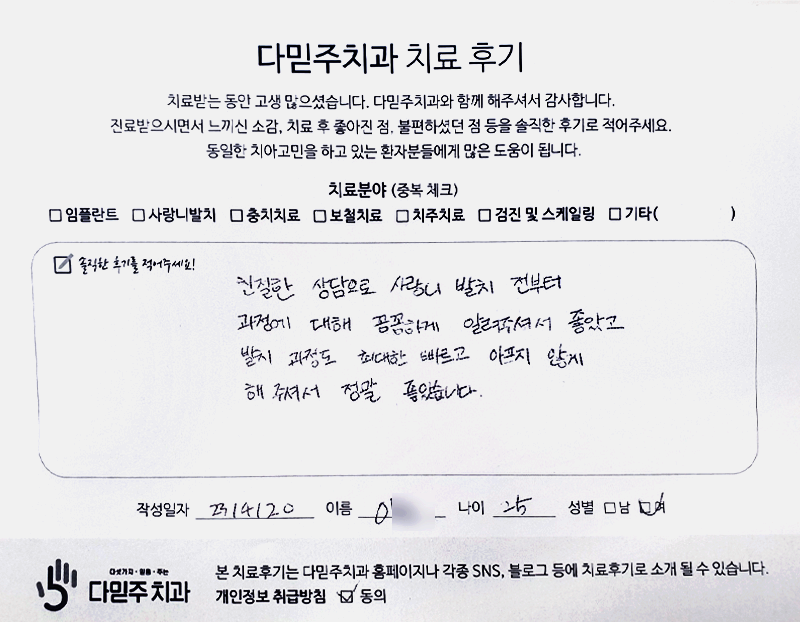 다믿주치과 치료 후기
치료받는 동안 고생 많으셨습니다. 다믿주치과와 함께 해주셔서 감사합니다.
진료받으시면서 느끼신 소감, 치료 후 좋아진 점, 불편하셨던 점 등을 솔직한 후기로 적어주세요.
동일한 치아고민을 하고 있는 환자분들에게 많은 도움이 됩니다.
치료분야 (중복 체크)
□ 임플란트 □ 사랑니발치 □ 충치치료 □ 보철치료 □ 치주치료 □ 검진 및 스케일링 □ 기타( )
☑ 솔직한 후기를 적어주세요!
친절한 상담으로 사랑니 발치 전부터
과정에 대해 꼼꼼하게 알려주셔서 좋았고
발치 과정도 최대한 빠르고 아프지 않게
해 주셔서 정말 좋았습니다.
작성일자 이름 이 나이 25 성별 □남 ☑여
다섯가지·믿음·주는
다믿주치과
본 치료후기는 다믿주치과 홈페이지나 각종 SNS, 블로그 등에 치료후기로 소개 될 수 있습니다.
개인정보 취급방침 ☑ 동의